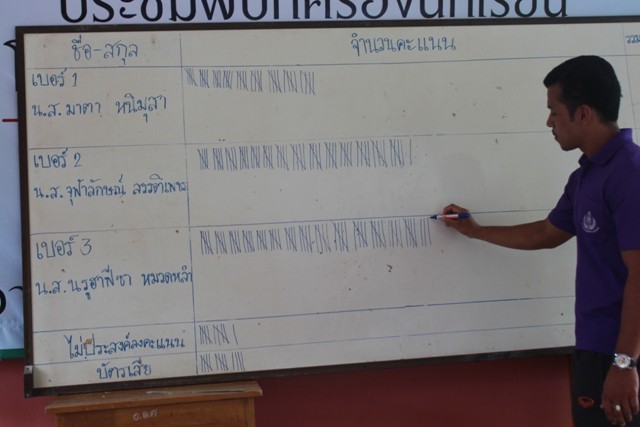 ประชุมผู้ปกครองนักเรียน
ชื่อ-สกุล จำนวนคะแนน รวม
เบอร์ 1
น.ส.มาตา หนิมุสา
เบอร์ 2
น.ส.จุฬาลักษณ์
เบอร์ 3
น.ส.นรูฮาฟีซา หมวดหลำ
ไม่ประสงค์ลงคะแนน
บัตรเสีย